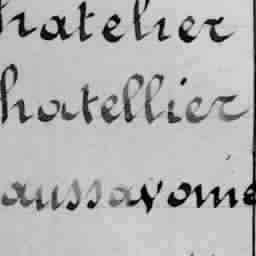 hatelier
hatellier
aussavoine